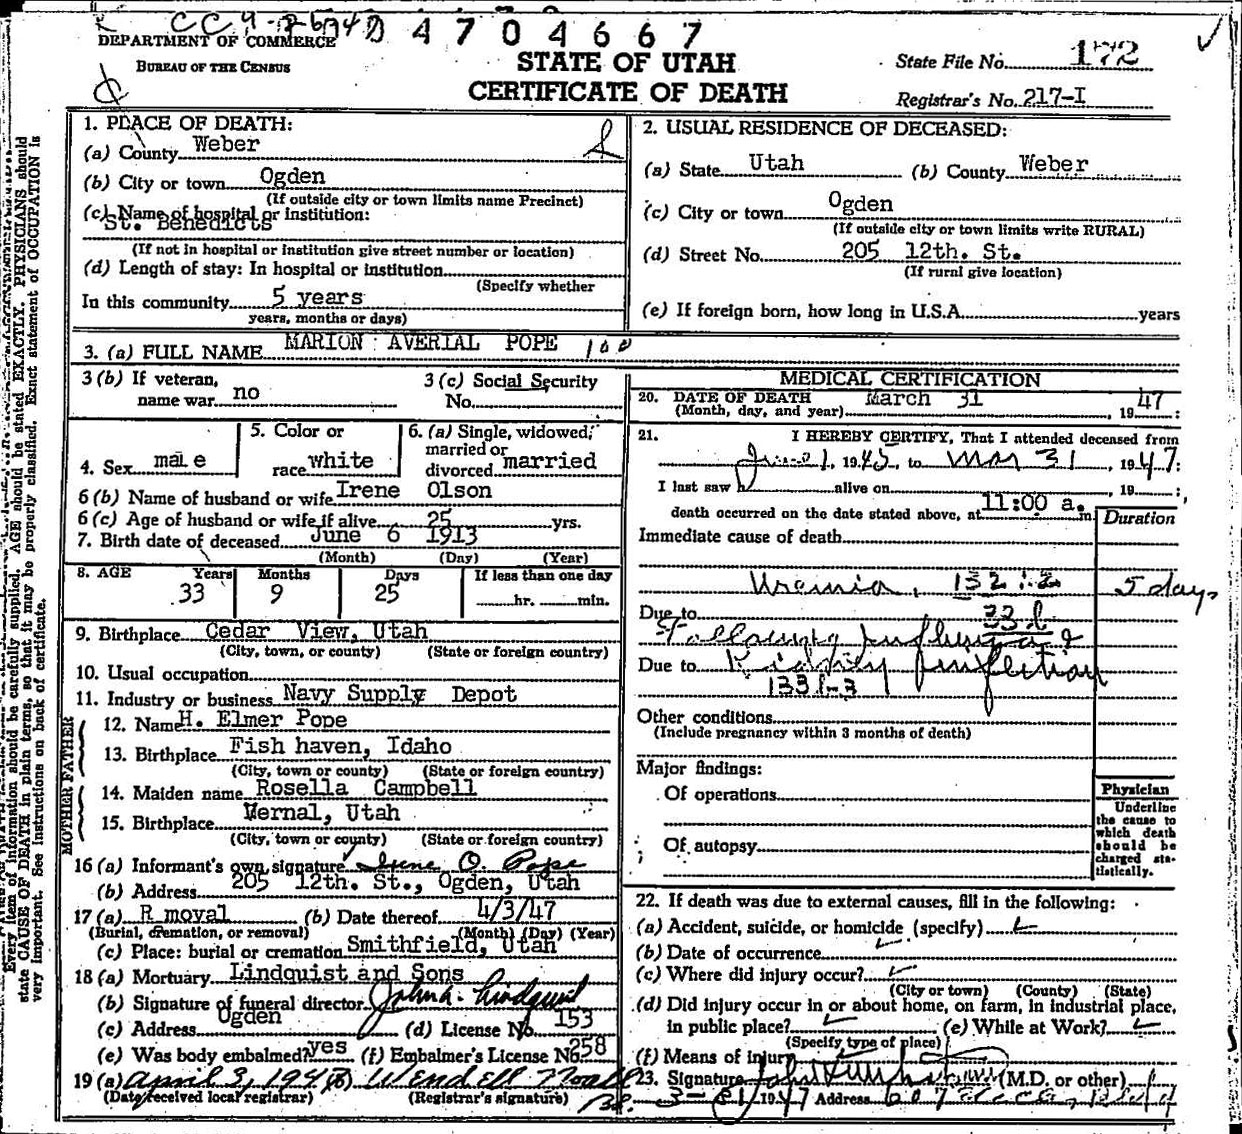 D 4 7 0 4 6 6 7
DEPARTMENT OF COMMERCE
BUREAU OF THE CENSUS
STATE OF UTAH
CERTIFICATE OF DEATH
State File No. 172
Registrar's No. 217-I
1. PLACE OF DEATH:
(a) County Weber
(b) City or town Ogden
(If outside city or town limits name Precinct)
(c) Name of hospital or institution:
St. Benedicts
(If not in hospital or institution give street number or location)
(d) Length of stay: In hospital or institution
(Specify whether
In this community 5 years
years, months or days)
2. USUAL RESIDENCE OF DECEASED:
(a) State Utah (b) County Weber
(c) City or town Ogden
(If outside city or town limits write RURAL)
(d) Street No. 205 12th. St.
(If rural give location)
(e) If foreign born, how long in U.S.A. years
3. (a) FULL NAME MARION AVERIAL POPE 100
3 (b) If veteran, name war no
3 (c) Social Security No.
4. Sex male
5. Color or race white
6. (a) Single, widowed, married or divorced married
6 (b) Name of husband or wife Irene Olson
6 (c) Age of husband or wife if alive 25 yrs.
7. Birth date of deceased June 6 1913
(Month) (Day) (Year)
8. AGE Years Months Days If less than one day
33 9 25 hr. min.
9. Birthplace Cedar View, Utah
(City, town, or county) (State or foreign country)
10. Usual occupation
11. Industry or business Navy Supply Depot
FATHER
12. Name H. Elmer Pope
13. Birthplace Fish haven, Idaho
(City, town or county) (State or foreign country)
MOTHER
14. Maiden name Rosella Campbell
15. Birthplace Vernal, Utah
(City, town or county) (State or foreign country)
16 (a) Informant's own signature Irene O. Pope
(b) Address 205 12th. St., Ogden, Utah
17 (a) R moval (b) Date thereof 4/3/47
(Burial, cremation, or removal) (Month) (Day) (Year)
(c) Place: burial or cremation Smithfield, Utah
18 (a) Mortuary Lindquist and Sons
(b) Signature of funeral director John A. Lindquist
(c) Address Ogden (d) License No. 153
(e) Was body embalmed? yes (f) Embalmer's License No. 258
19 (a) April 3, 1947 (b) Wendell Noall
(Date received local registrar) (Registrar's signature)
MEDICAL CERTIFICATION
20. DATE OF DEATH March 31 , 19 47 :
(Month, day, and year)
21. I HEREBY CERTIFY, That I attended deceased from
June 1, 1945, to Mar 31, 1947:
I last saw h alive on , 19 :
death occurred on the date stated above, at 11:00 a. m.
Duration
Immediate cause of death
Uremia, 132:2 5 days
Due to 33 b
Following influenza &
Due to Kidney infection
133 b-3
Other conditions
(Include pregnancy within 3 months of death)
Major findings:
Of operations
Of autopsy
Physician
Underline
the cause to
which death
should be
charged sta-
tistically.
22. If death was due to external causes, fill in the following:
(a) Accident, suicide, or homicide (specify)
(b) Date of occurrence
(c) Where did injury occur?
(City or town) (County) (State)
(d) Did injury occur in or about home, on farm, in industrial place,
in public place? (e) While at Work?
(Specify type of place)
(f) Means of injury
23. Signature (M.D. or other)
3-31 1947 Address
Every item of information should be carefully supplied. AGE should be stated EXACTLY. PHYSICIANS should
state CAUSE OF DEATH in plain terms, so that it may be properly classified. Exact statement of OCCUPATION is
very important. See instructions on back of certificate.